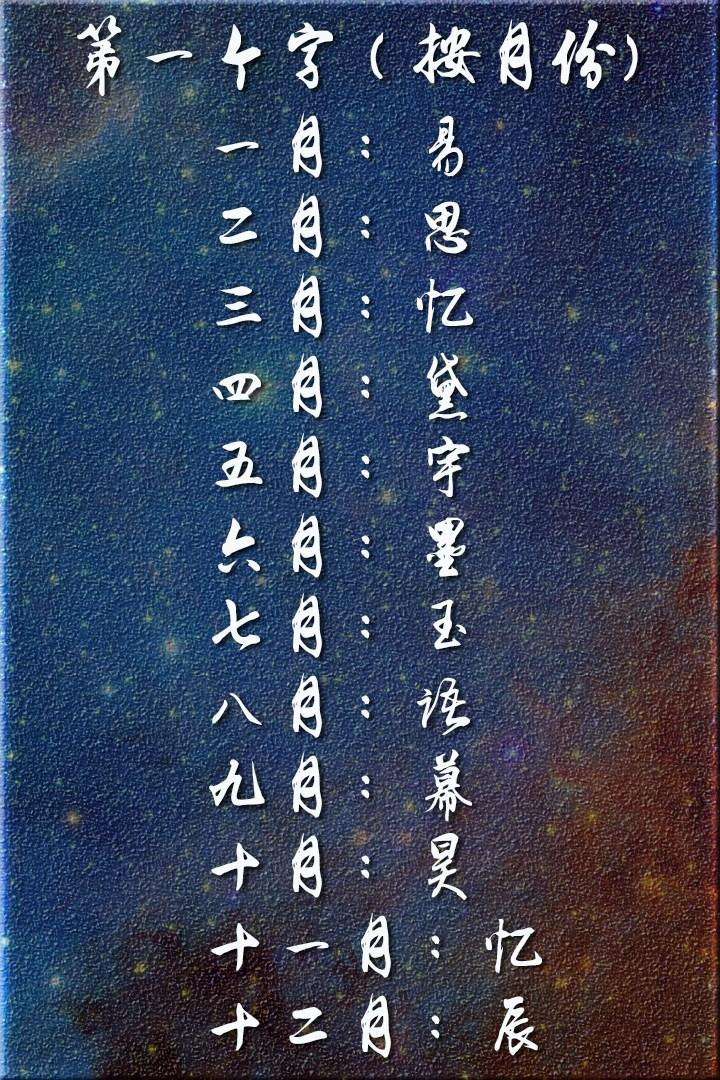 第一个字（按月份）
一月：易
二月：思
三月：忆
四月：黛
五月：宇
六月：墨
七月：玉
八月：语
九月：幕
十月：昊
十一月：忆
十二月：辰